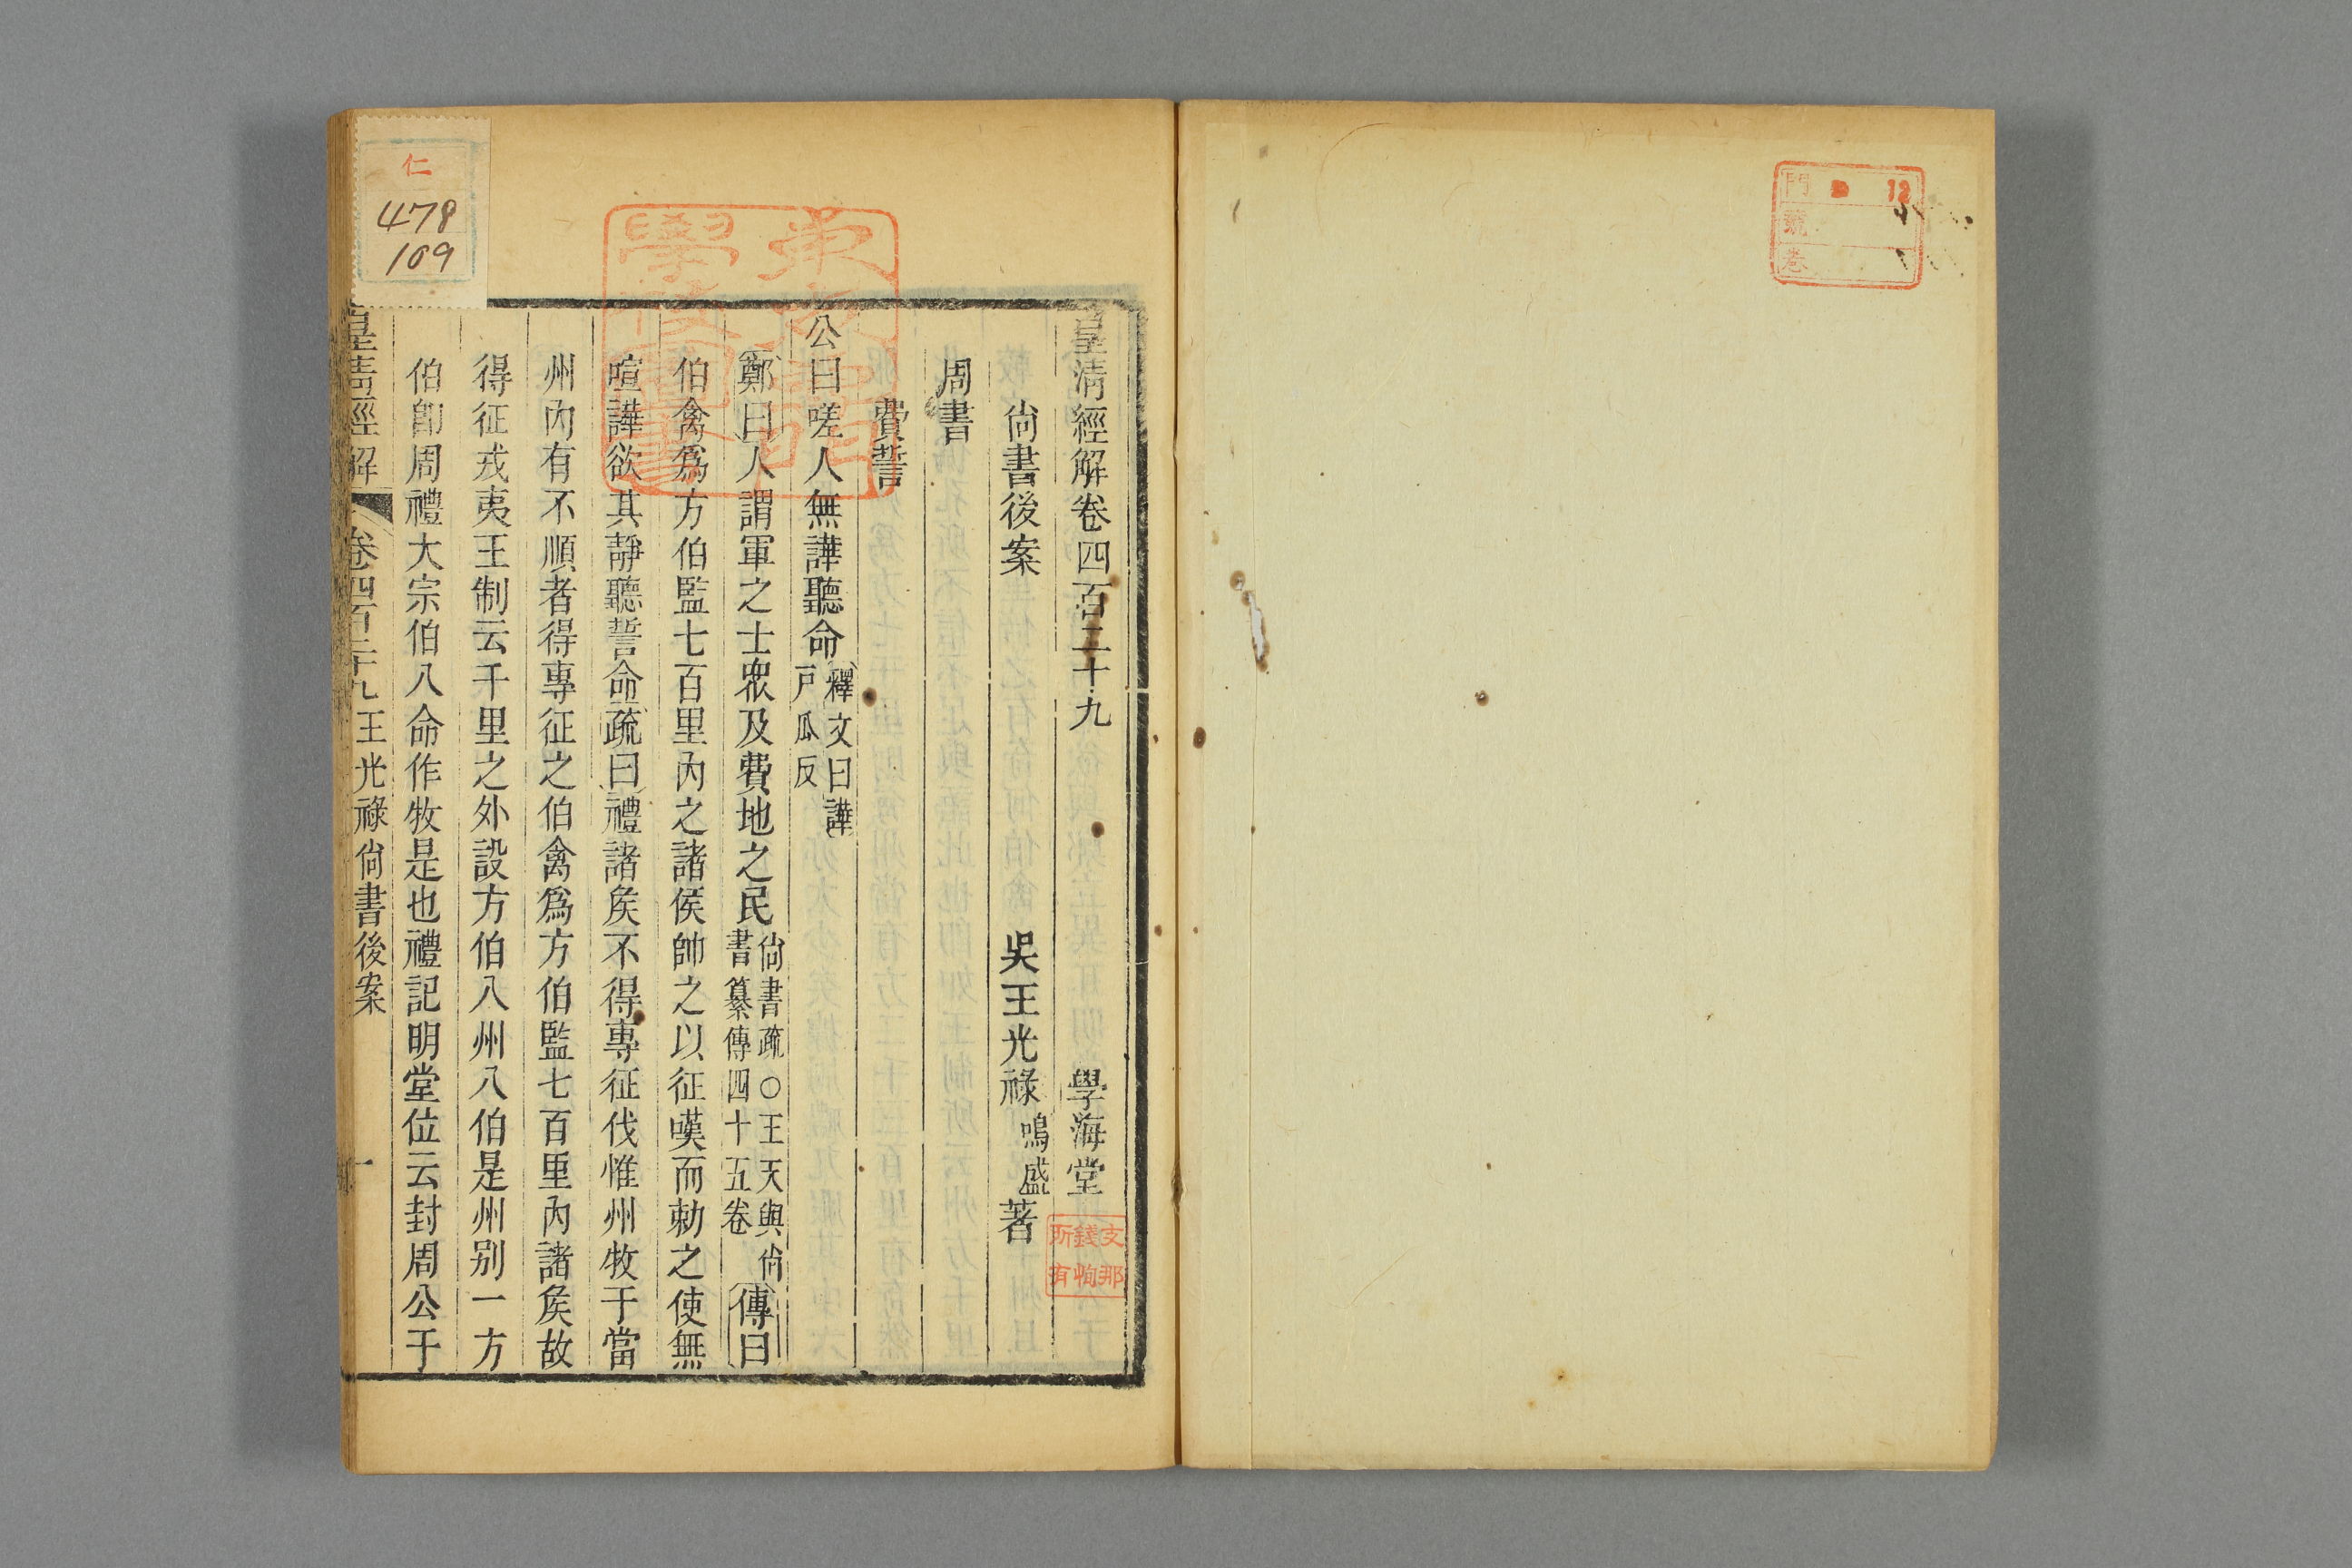 門 12
號
卷
皇清經解卷四百二十九 學海堂
尚書後案 吳王光祿鳴盛著
支那
錢恂
所有
周書
費誓
公曰嗟人無譁聽命釋文曰譁戸瓜反
鄭曰人謂軍之士眾及費地之民尚書疏○王天與尚書纂傳四十五卷傳曰
伯禽爲方伯監七百里內之諸侯帥之以征嘆而勑之使無
喧譁欲其靜聽誓命疏曰禮諸矦不得專征伐惟州牧于當
州內有不順者得專征之伯禽爲方伯監七百里內諸矦故
得征戎夷王制云千里之外設方伯八州八伯是州别一方
伯卽周禮大宗伯八命作牧是也禮記明堂位云封周公于
皇清經解 卷四百二十九王光祿尚書後案 一
仁
478
109